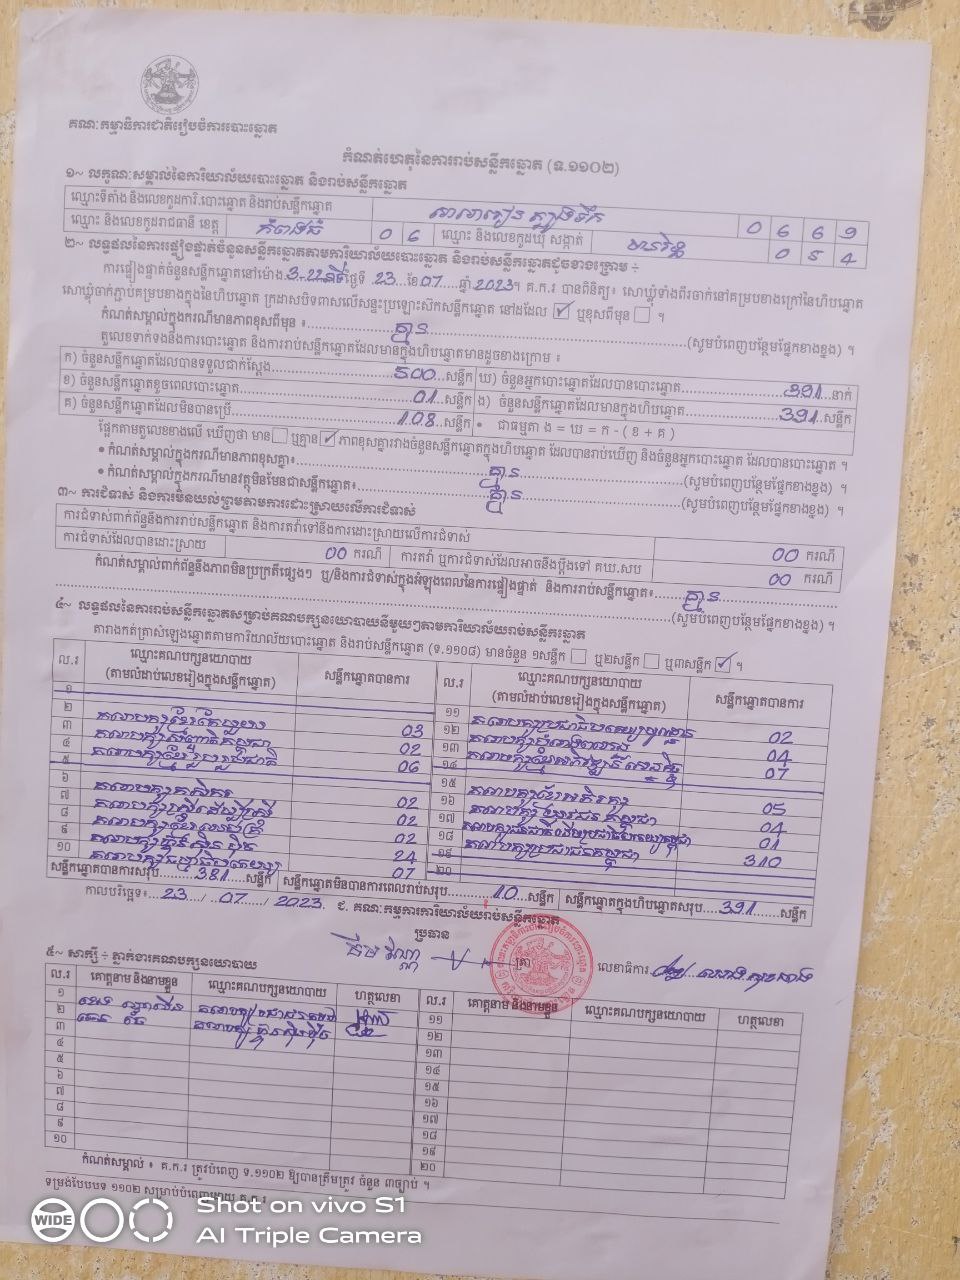 គណៈកម្មាធិការជាតិរៀបចំការបោះឆ្នោត
កំណត់ហេតុនៃការរាប់សន្លឹកឆ្នោត (ទ.១១០២)
១~ លក្ខណៈសម្គាល់នៃការិយាល័យបោះឆ្នោត និងរាប់សន្លឹកឆ្នោត
ឈ្មោះទីតាំង និងលេខកូដការិ.បោះឆ្នោត និងរាប់សន្លឹកឆ្នោត 0 6 6 9
ឈ្មោះ និងលេខកូដរាជធានី ខេត្ត កំពង់ធំ 0 6 ឈ្មោះ និងលេខកូដឃុំ សង្កាត់ 0 5 4
២~ លទ្ធផលនៃការផ្ទៀងផ្ទាត់ចំនួនសន្លឹកឆ្នោតតាមការិយាល័យបោះឆ្នោត និងរាប់សន្លឹកឆ្នោតដូចខាងក្រោម ÷
ការផ្ទៀងផ្ទាត់ចំនួនសន្លឹកឆ្នោតនៅម៉ោង 3-22នាទី ថ្ងៃទី 23 ខែ 07 ឆ្នាំ 2023។ គ.ក.រ បានពិនិត្យ៖ សោឃ្លុំទាំងពីរចាក់នៅគម្របខាងក្រៅនៃហិបឆ្នោត
សោឃ្លុំចាក់ភ្ជាប់គម្របខាងក្នុងនៃហិបឆ្នោត ក្រដាសបិទពាសលើសន្ទះប្រឡោះស៊កសន្លឹកឆ្នោត នៅដដែល ☑ ឬខុសពីមុន ☐ ។
កំណត់សម្គាល់ក្នុងករណីមានភាពខុសពីមុន ៖ គ្មាន (សូមបំពេញបន្ថែមផ្នែកខាងខ្នង) ។
តួលេខទាក់ទងនឹងការបោះឆ្នោត និងការរាប់សន្លឹកឆ្នោតដែលមានក្នុងហិបឆ្នោតមានដូចខាងក្រោម ៖
ក) ចំនួនសន្លឹកឆ្នោតដែលបានទទួលជាក់ស្តែង 500 សន្លឹក ឃ) ចំនួនអ្នកបោះឆ្នោតដែលបានបោះឆ្នោត 391 នាក់
ខ) ចំនួនសន្លឹកឆ្នោតខូចពេលបោះឆ្នោត 01 សន្លឹក ង) ចំនួនសន្លឹកឆ្នោតដែលមានក្នុងហិបឆ្នោត 391 សន្លឹក
គ) ចំនួនសន្លឹកឆ្នោតដែលមិនបានប្រើ 108 សន្លឹក • ជាធម្មតា ង = ឃ = ក - ( ខ + គ )
ផ្អែកតាមតួលេខខាងលើ ឃើញថា មាន ☐ ឬគ្មាន ☑ ភាពខុសគ្នារវាងចំនួនសន្លឹកឆ្នោតក្នុងហិបឆ្នោត ដែលបានរាប់ឃើញ និងចំនួនអ្នកបោះឆ្នោត ដែលបានបោះឆ្នោត ។
• កំណត់សម្គាល់ក្នុងករណីមានភាពខុសគ្នា៖ គ្មាន (សូមបំពេញបន្ថែមផ្នែកខាងខ្នង) ។
• កំណត់សម្គាល់ក្នុងករណីមានវត្ថុមិនមែនជាសន្លឹកឆ្នោត៖ គ្មាន (សូមបំពេញបន្ថែមផ្នែកខាងខ្នង) ។
៣~ ការជំទាស់ និងការមិនយល់ព្រមតាមការដោះស្រាយលើការជំទាស់
ការជំទាស់ពាក់ព័ន្ធនឹងការរាប់សន្លឹកឆ្នោត និងការតវ៉ាទៅនឹងការដោះស្រាយលើការជំទាស់ 00 ករណី
ការជំទាស់ដែលបានដោះស្រាយ 00 ករណី ការតវ៉ា ឬការជំទាស់ដែលអាចនឹងប្តឹងទៅ គឃ.សប 00 ករណី
កំណត់សម្គាល់ពាក់ព័ន្ធនឹងភាពមិនប្រក្រតីផ្សេងៗ ឬ/និងការជំទាស់ក្នុងអំឡុងពេលនៃការផ្ទៀងផ្ទាត់ និងការរាប់សន្លឹកឆ្នោត៖ គ្មាន
(សូមបំពេញបន្ថែមផ្នែកខាងខ្នង) ។
៤~ លទ្ធផលនៃការរាប់សន្លឹកឆ្នោតសម្រាប់គណបក្សនយោបាយនីមួយៗតាមការិយាល័យរាប់សន្លឹកឆ្នោត
តារាងកត់ត្រាសំឡេងឆ្នោតតាមការិយាល័យបោះឆ្នោត និងរាប់សន្លឹកឆ្នោត (ទ.១១០៨) មានចំនួន ១សន្លឹក ☐ ឬ២សន្លឹក ☐ ឬ៣សន្លឹក ☑ ។
ល.រ ឈ្មោះគណបក្សនយោបាយ (តាមលំដាប់លេខរៀងក្នុងសន្លឹកឆ្នោត) សន្លឹកឆ្នោតបានការ ល.រ ឈ្មោះគណបក្សនយោបាយ (តាមលំដាប់លេខរៀងក្នុងសន្លឹកឆ្នោត) សន្លឹកឆ្នោតបានការ
១ ១១ 02
២ 03 ១២ 04
៣ 02 ១៣ 07
៤ គណបក្សខ្មែររួបរួមជាតិ 06 ១៤
៥ ១៥ 05
៦ គណបក្សកសិករ 02 ១៦ គណបក្សយុវជនកម្ពុជា 04
៧ គណបក្សស្រីដើម្បីស្រី 02 ១៧ 01
៨ 02 ១៨ គណបក្សប្រជាជនកម្ពុជា 310
៩ គណបក្សហ៊្វុនស៊ិនប៉ិច 24 ១៩
១០ 07 ២០
សន្លឹកឆ្នោតបានការសរុប 381 សន្លឹក សន្លឹកឆ្នោតមិនបានការពេលរាប់សរុប 10 សន្លឹក សន្លឹកឆ្នោតក្នុងហិបឆ្នោតសរុប 391 សន្លឹក
កាលបរិច្ឆេទ៖ 23 / 07 / 2023. ជ. គណៈកម្មការការិយាល័យរាប់សន្លឹកឆ្នោត
ប្រធាន
លេខាធិការ
៥~ សាក្សី ÷ ភ្នាក់ងារគណបក្សនយោបាយ
ល.រ គោត្តនាម និងនាមខ្លួន ឈ្មោះគណបក្សនយោបាយ ហត្ថលេខា ល.រ គោត្តនាម និងនាមខ្លួន ឈ្មោះគណបក្សនយោបាយ ហត្ថលេខា
១ ១១
២ ១២
៣ ១៣
៤ ១៤
៥ ១៥
៦ ១៦
៧ ១៧
៨ ១៨
៩ ១៩
១០ ២០
កំណត់សម្គាល់ ៖ គ.ក.រ ត្រូវបំពេញ ទ.១១០២ ឱ្យបានត្រឹមត្រូវ ចំនួន ៣ច្បាប់ ។
ទម្រង់បែបបទ ១១០២ សម្រាប់បំពេញដោយ គ.ក.រ
WIDE
Shot on vivo S1
AI Triple Camera